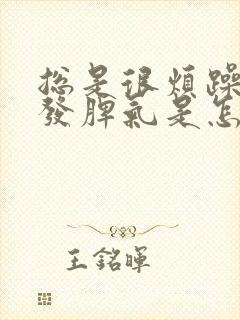 總是很煩躁
發脾氣是怎
王銘暉